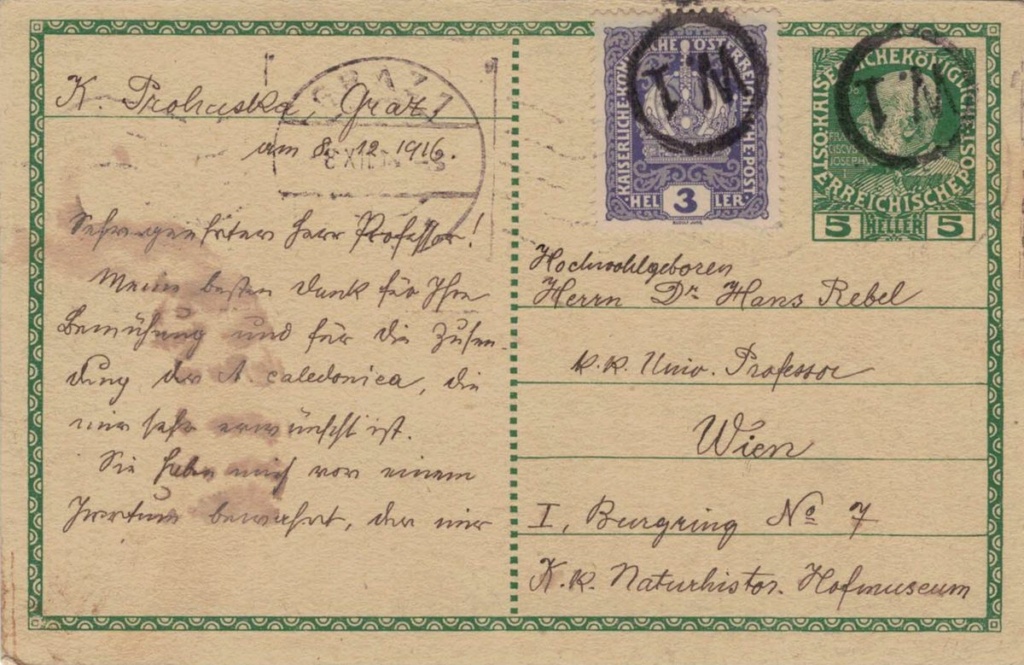 K. Prohaska, Graz
am 8. 12. 1916.
GRAZ 1
8 XII
Sehr geehrter Herr Professor!
Meinen besten Dank für Ihre
Bemühung und für die Zusen-
dung der A. caledonica, die
mir sehr erwünscht ist.
Sie haben mich vor einem
Irrtum bewahrt, der mir
KAISERLICHE KÖNIGLICHE ÖSTERREICHISCHE POST
3
HELLER
T.M
KAISERLICHE KÖNIGLICHE ÖSTERREICHISCHE POST
5 HELLER 5
T.M
Hochwohlgeboren
Herrn Dr. Hans Rebel
k.k. Univ. Professor
Wien
I, Burgring No 7
K.k. Naturhistor. Hofmuseum